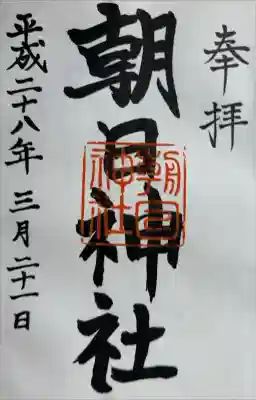 奉拝
朝日神社
朝日神社
平成二十八年 三月二十一日